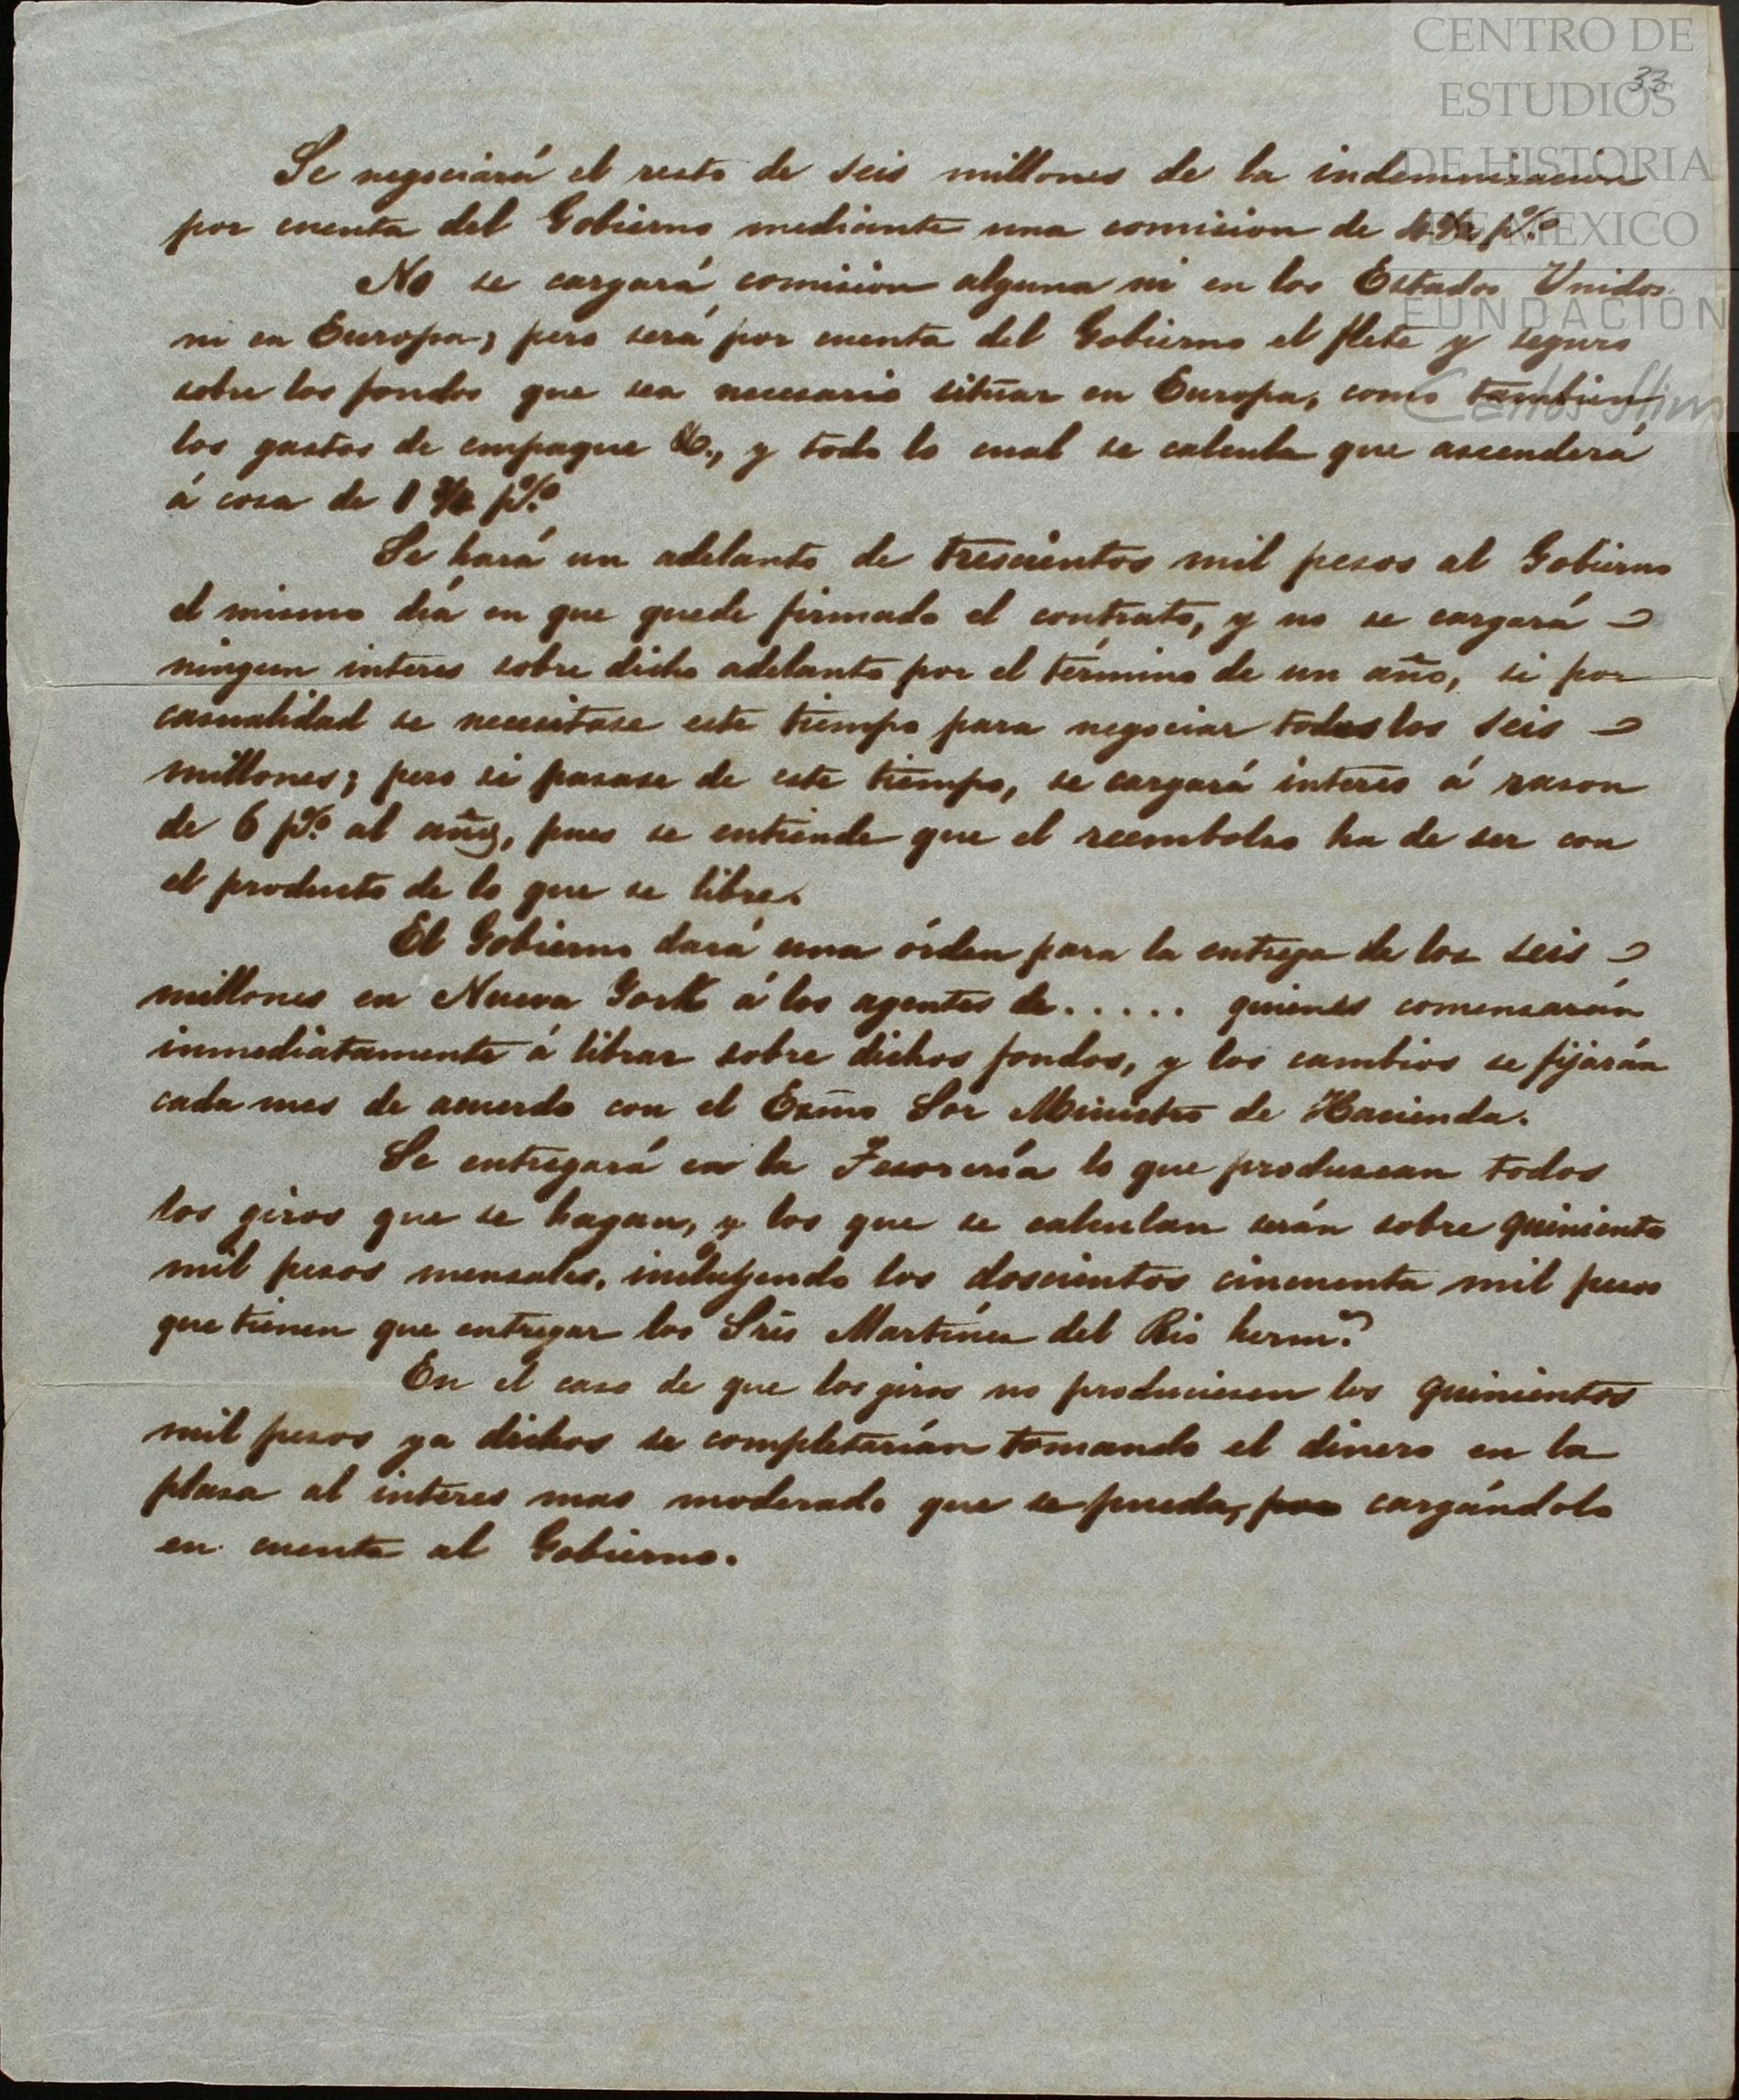 CENTRO DE
ESTUDIOS
DE HISTORIA
DE MEXICO
FUNDACIÓN
Carlos Slim
33
Se negociará el resto de seis millones de la indemnizacion
por cuenta del Gobierno mediante una comision de p%
No se cargará comision alguna ni en los Estados Unidos
ni en Europa; pero será por cuenta del Gobierno el flete y seguro
sobre los fondos que sea necesario situar en Europa, como tambien
los gastos de empaque &., y todo lo cual se calcula que ascenderá
á cosa de 1 p%
Se hará un adelanto de trescientos mil pesos al Gobierno
el mismo dia en que quede firmado el contrato, y no se cargará
ningun interes sobre dicho adelanto por el término de un año, si por
casualidad se necesitase este tiempo para negociar todos los seis
millones; pero si pasase de este tiempo, se cargará interes á rason
de 6 p% al año, pues se entiende que el reembolso ha de ser con
el producto de lo que se libre.
El Gobierno dará una órden para la entrega de los seis
millones en Nueva York á los agentes de . . . . . quienes comensarán
inmediatamente á librar sobre dichos fondos, y los cambios se fijarán
cada mes de acuerdo con el Exmo Sor Ministro de Hacienda.
Se entregará en la Tesorería lo que produscan todos
los giros que se hagan, y los que se calculan serán sobre quinientos
mil pesos mensales, incluyendo los doscientos cincuenta mil pesos
que tienen que entregar los Sres Martínez del Rio hermos
En el caso de que los giros no produciesen los quinientos
mil pesos ya dichos se completarían tomando el dinero en la
plasa al interes mas moderado que se pueda, cargándolo
en cuenta al Gobierno.